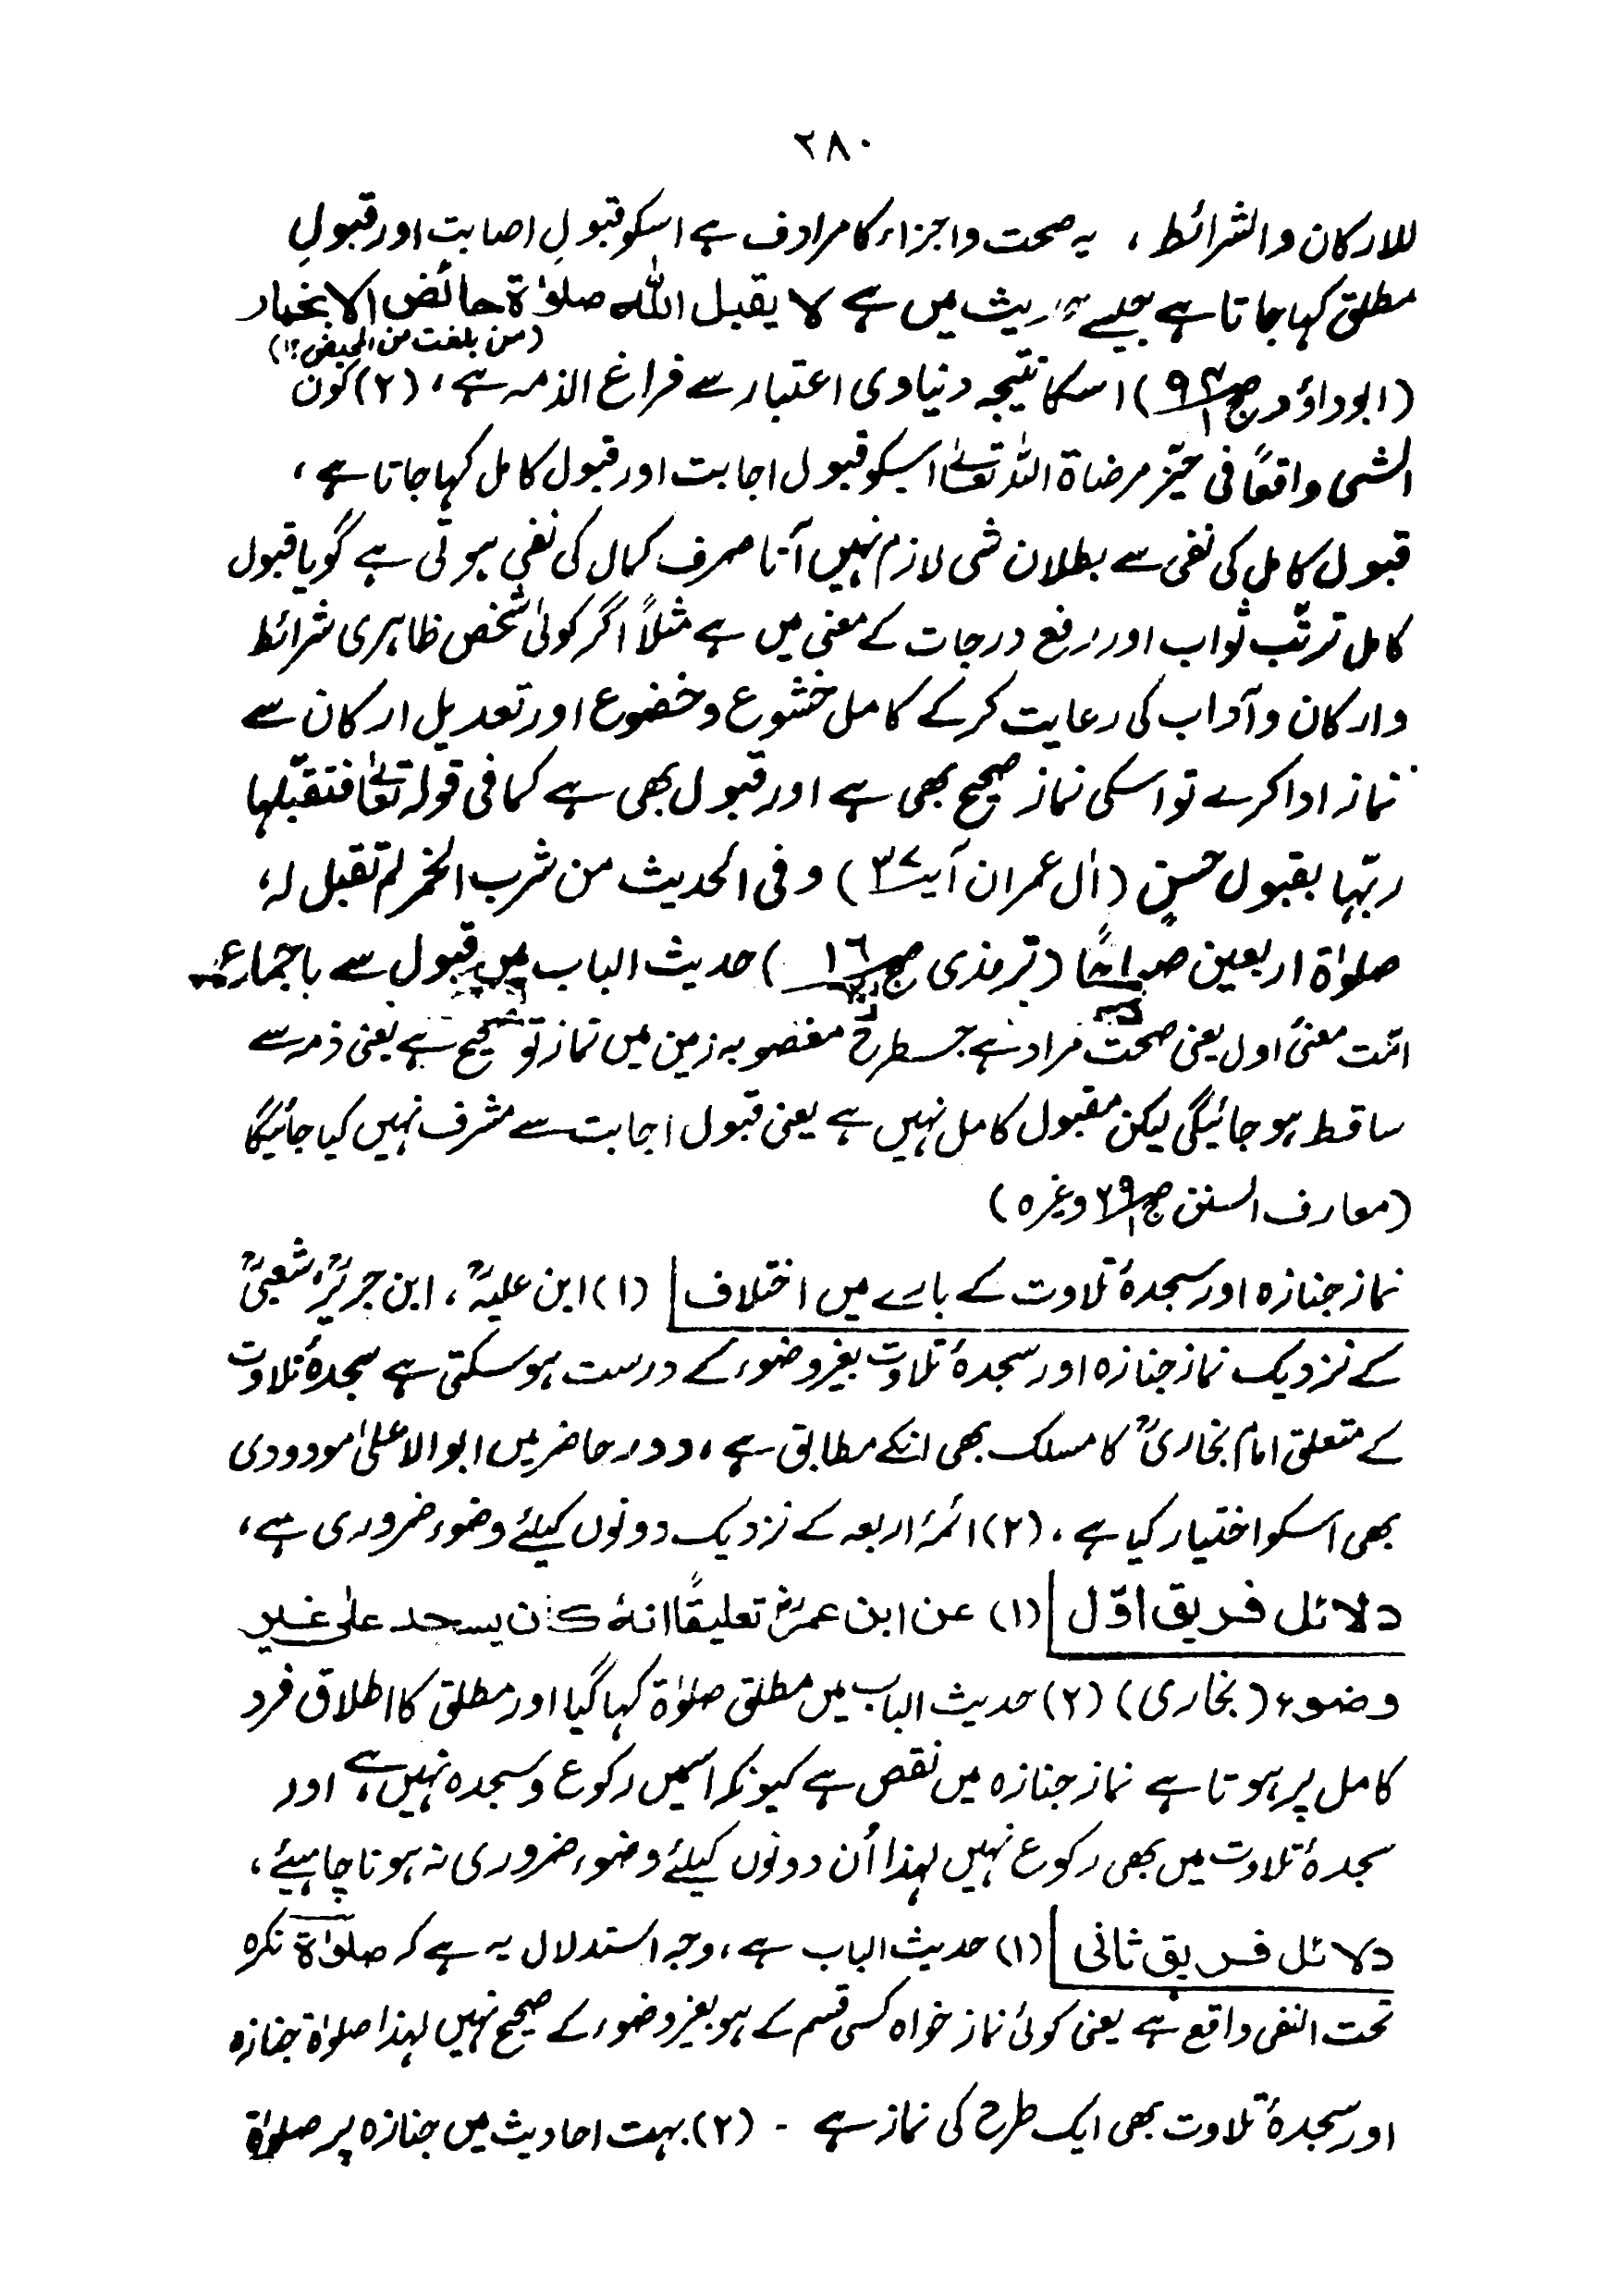 ۲۸۰
للارکان والشرائط ، یہ صحت واجزاء کا مرادف ہے اسکو قبولِ اصابت اور قبولِ
مطلق کہا جاتا ہے جیسے حدیث میں ہے لا یقبل اللہ صلوٰۃ حائض الا بخمار
(من بلغت من المحیض ۱۲)
(ابوداؤد ج) اسکا نتیجہ دنیاوی اعتبار سے فراغ الذمہ ہے، (۲) کون
الشی واقعًا فی حیّز مرضاۃ اللہ تعالےٰ اسکو قبول اجابت اور قبول کامل کہا جاتا ہے ،
قبول کامل کی نفی سے بطلان شی لازم نہیں آتا صرف کمال کی نفی ہوتی ہے گویا قبول
کامل ترتّب ثواب اور رفع درجات کے معنی میں ہے مثلاً اگر کوئی شخص ظاہری شرائط
وارکان وآداب کی رعایت کرکے کامل خشوع وخضوع اور تعدیل ارکان سے
نماز ادا کرے تو اسکی نماز صحیح بھی ہے اور قبول بھی ہے کما فی قولہ تعالےٰ فتقبّلہا
ربّہا بقبول حسنٍ (اٰل عمران آیت ۳۷) وفی الحدیث من شرب الخمر لم تقبل لہ ،
صلوٰۃ اربعین صباحًا (ترمذی ج) حدیث الباب میں قبول سے باجماع
امّت معنیٔ اول یعنی صحت مراد ہے جسطرح مغصوبہ زمین میں نماز تو صحیح ہے یعنی ذمہ سے
ساقط ہو جائیگی لیکن مقبول کامل نہیں ہے یعنی قبول اجابت سے مشرف نہیں کیا جائیگا
(معارف السنن ج ۱ ص ۲۹ وغیرہ)
نماز جنازہ اور سجدۂ تلاوت کے بارے میں اختلاف | (۱) ابن علیہؒ ، ابن جریرؒ ، شعبیؒ
کے نزدیک نماز جنازہ اور سجدۂ تلاوت بغیر وضوء کے درست ہوسکتی ہے سجدۂ تلاوت
کے متعلق امام بخاریؒ کا مسلک بھی انکے مطابق ہے ، دور حاضر میں ابوالاعلیٰ مودودی
بھی اسکو اختیار کیا ہے ، (۲) ائمۂ اربعہ کے نزدیک دونوں کیلئے وضوء ضروری ہے ،
دلائل فریق اوّل | (۱) عن ابن عمرؓ تعلیقًا انہٗ کان یسجد علی غیر
وضوء (بخاری) (۲) حدیث الباب میں مطلق صلوٰۃ کہا گیا اور مطلق کا اطلاق فرد
کامل پر ہوتا ہے نماز جنازہ میں نقص ہے کیونکہ اسمیں رکوع وسجدہ نہیں ہے ، اور
سجدۂ تلاوت میں بھی رکوع نہیں لہذا اُن دونوں کیلئے وضوء ضروری نہ ہونا چاہیئے ،
دلائل فریق ثانی | (۱) حدیث الباب ہے ، وجہ استدلال یہ ہے کہ صلوٰۃ نکرہ
تحت النفی واقع ہے یعنی کوئی نماز خواہ کسی قسم کے ہو بغیر وضوء کے صحیح نہیں لہذا صلوٰۃ جنازہ
اور سجدۂ تلاوت بھی ایک طرح کی نماز ہے - (۲) بہت احادیث میں جنازہ پر صلوٰۃ